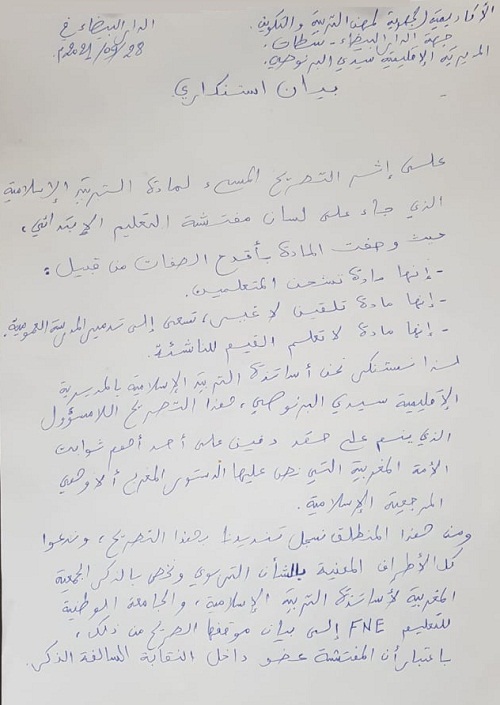 الأكاديمية الجهوية لمهن التربية والتكوين.
جهة الدار البيضاء - سطات.
المديرية الإقليمية سيدي البرنوصي.
الدار البيضاء في
28/09/2021م.
بيان استنكاري
على إثر التصريح المسيء لمادة التربية الإسلامية
الذي جاء على لسان مفتشة التعليم الابتدائي،
حيث وصفت المادة بأقدح الصفات من قبيل:
- إنها مادة تشحن المتعلمين.
- إنها مادة تلقين لا غير، تسعى إلى تدمير المدرسة العمومية.
- إنها مادة لا تعلم القيم للناشئة.
لذا نستنكر نحن أساتذة التربية الإسلامية بالمديرية
الإقليمية سيدي البرنوصي، هذا التصريح اللامسؤول
الذي ينم على حقد دفين على أحد أهم ثوابت
الأمة المغربية التي نص عليها الدستور المغربي ألا وهي
المرجعية الإسلامية.
ومن هذا المنطلق نسجل تنديدنا بهذا التصريح، وندعوا
كل الأطراف المعنية بالشأن التربوي ونخص بالذكر الجمعية
المغربية لأساتذة التربية الإسلامية، والجامعة الوطنية
للتعليم FNE إلى بيان موقفها الصريح من ذلك،
باعتبار أن المفتشة عضو داخل النقابة السالفة الذكر.